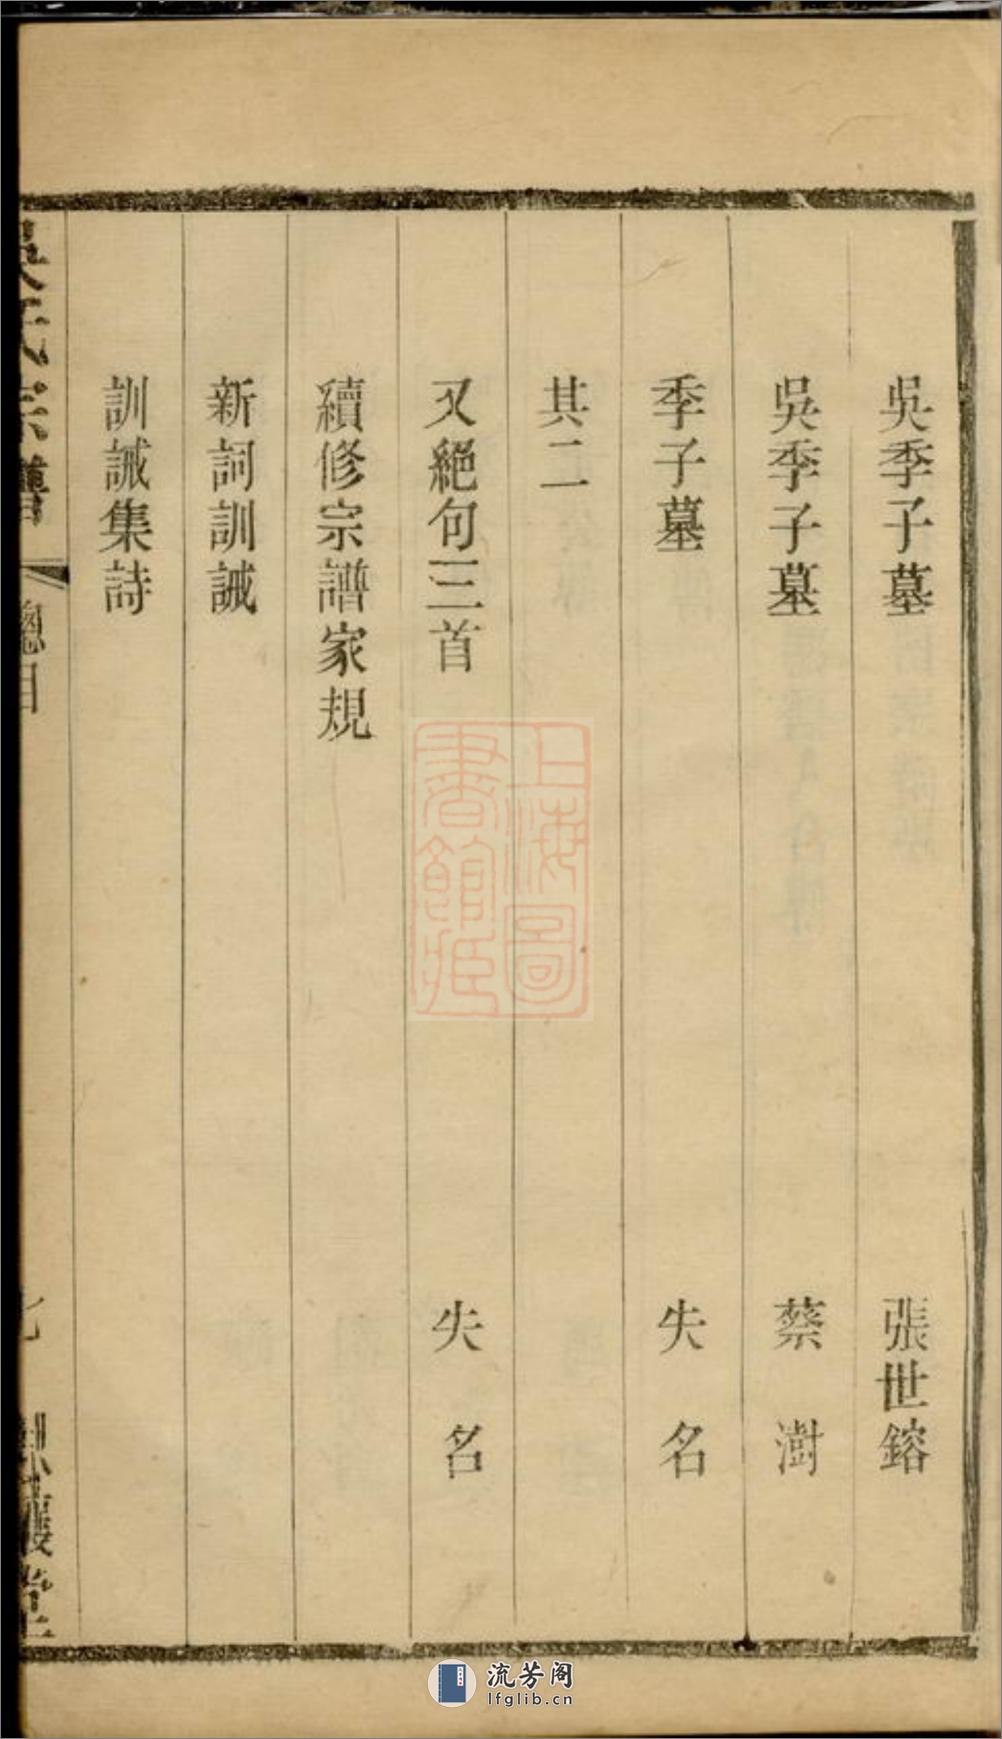 吳季子墓 張世鎔
吳季子墓 蔡澍
季子墓 失名
其二
又絕句三首 失名
續修宗譜家規
新詞訓誡
訓誡集詩
吳氏宗譜 總目 七 讓堂
上海圖書館藏
流芳阁
lfglib.cn